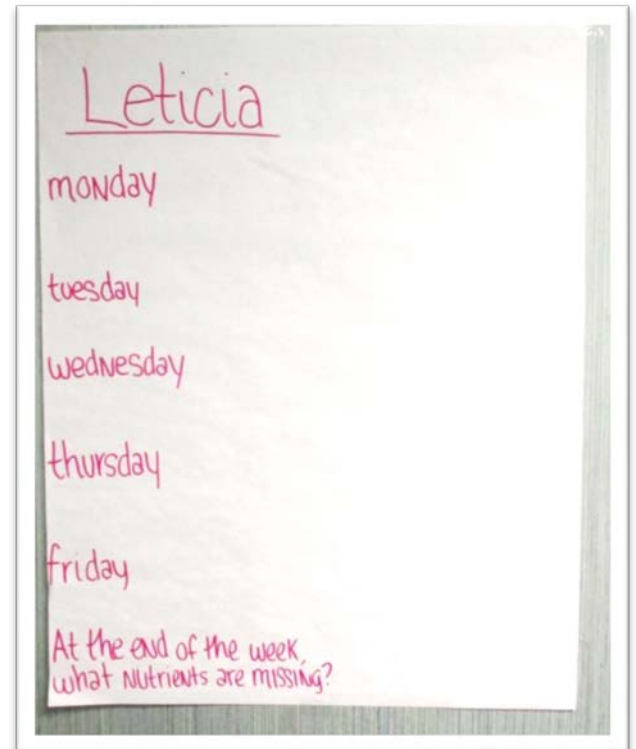 Leticia
monday
tuesday
wednesday
thursday
friday
At the end of the week,
what nutrients are missing?